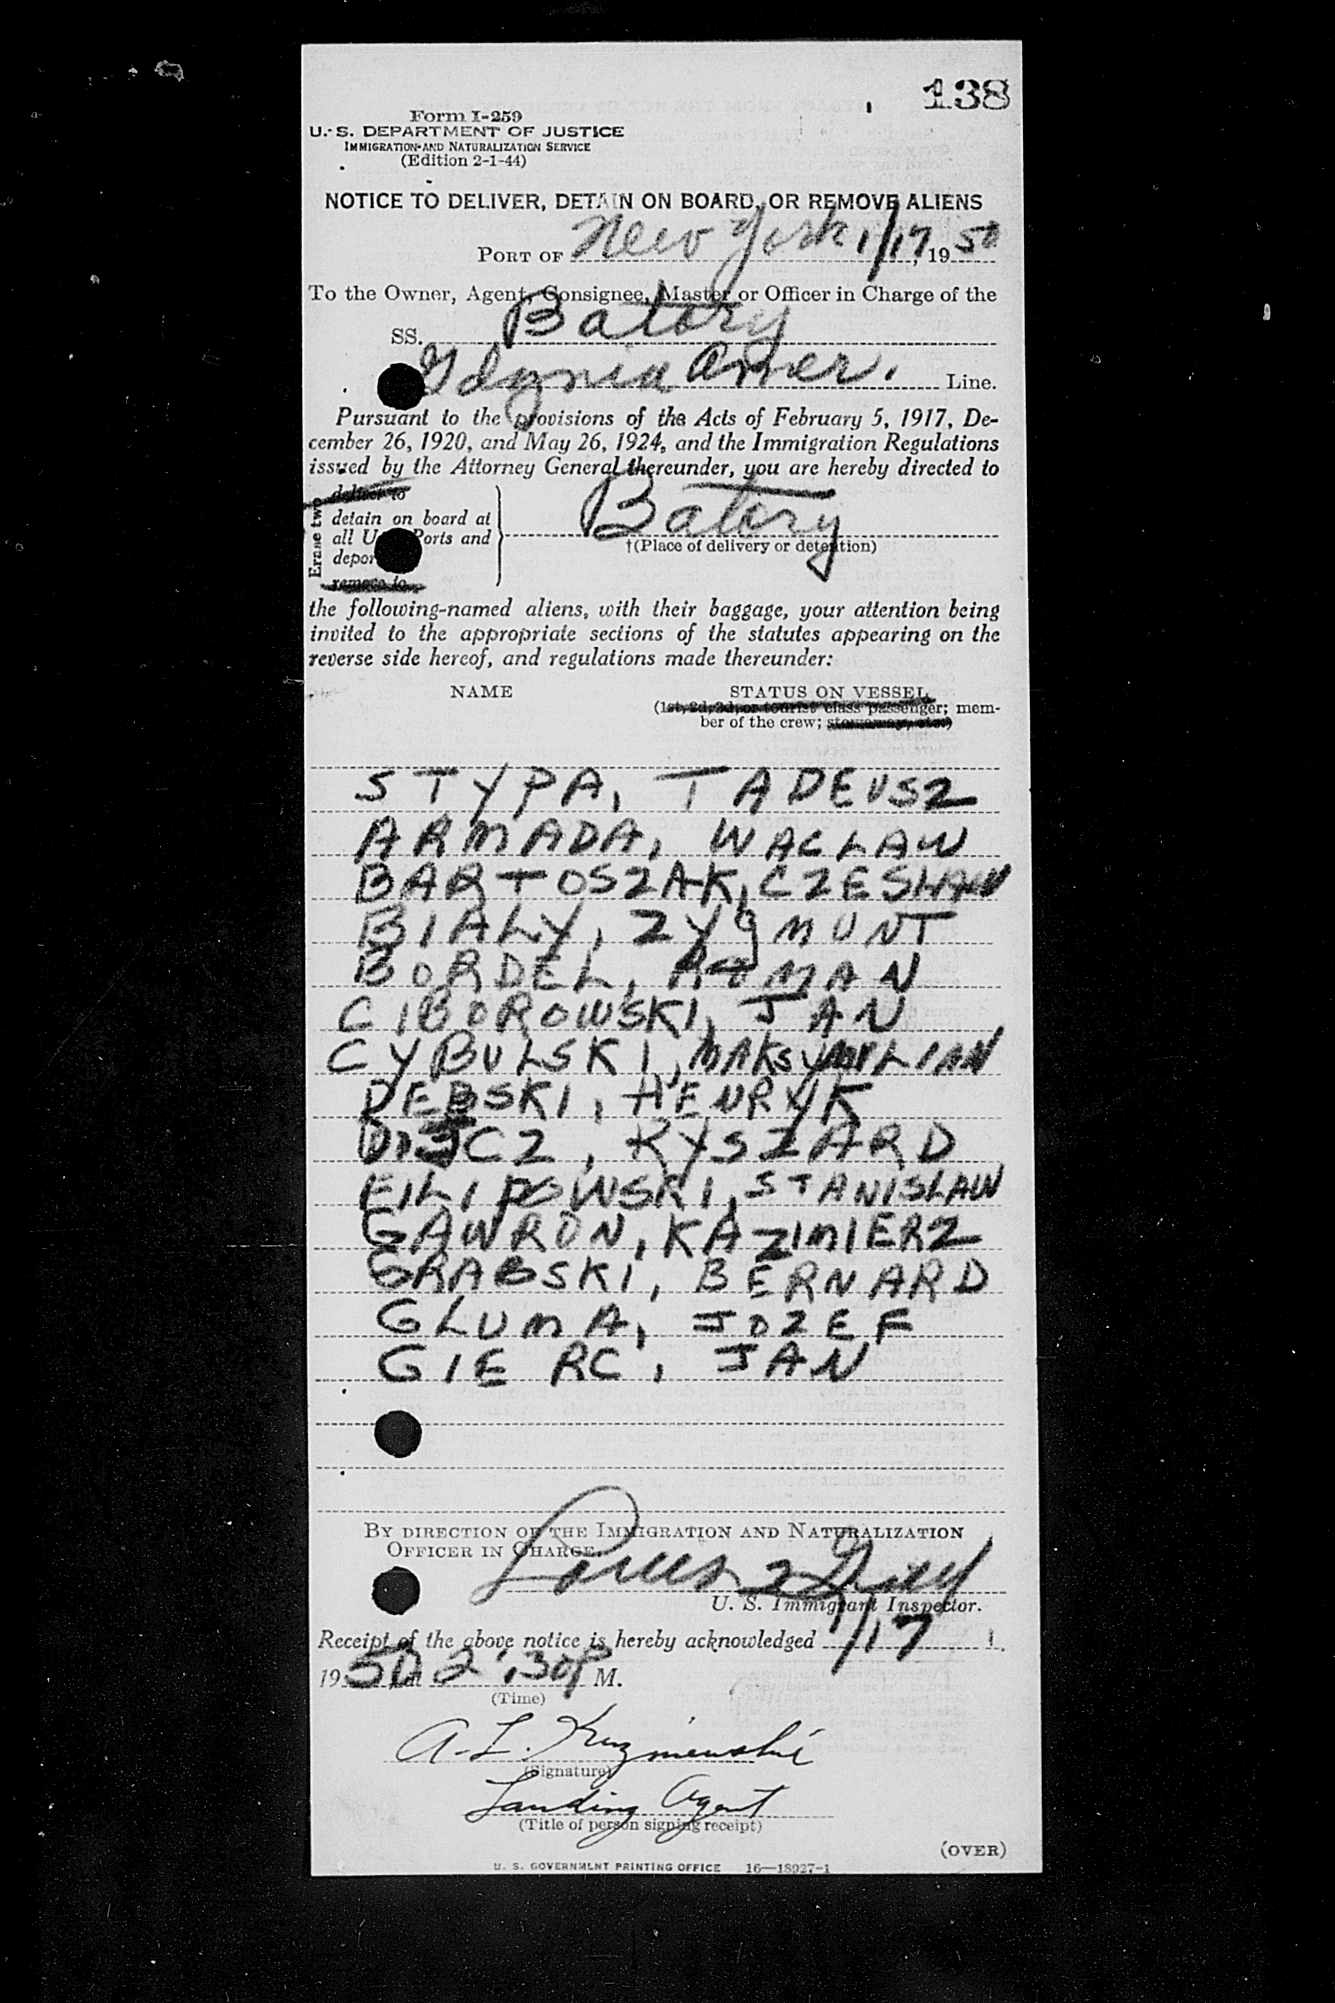 138
Form I-259
U. S. DEPARTMENT OF JUSTICE
IMMIGRATION AND NATURALIZATION SERVICE
(Edition 2-1-44)
NOTICE TO DELIVER, DETAIN ON BOARD, OR REMOVE ALIENS
PORT OF New York 1/17, 1950
To the Owner, Agent, Consignee, Master or Officer in Charge of the
SS. Batory
Gdynia Amer. Line.
Pursuant to the provisions of the Acts of February 5, 1917, De-
cember 26, 1920, and May 26, 1924, and the Immigration Regulations
issued by the Attorney General thereunder, you are hereby directed to
Erase two
deliver to
detain on board at
all U. Ports and
depor
remove to
Batory
†(Place of delivery or detention)
the following-named aliens, with their baggage, your attention being
invited to the appropriate sections of the statutes appearing on the
reverse side hereof, and regulations made thereunder:
NAME STATUS ON VESSEL
(1st, 2d, 3d, or tourist class passenger; mem-
ber of the crew; stowaway, etc.)
STYPA, TADEUSZ
ARMADA, WACLAW
BARTOSZAK, CZESLAW
BIALY, ZYgMUNT
BORDEL, ROMAN
CIBOROWSKI, JAN
CYBULSKI, MAKSYMILIAN
DEBSKI, HENRYK
RYSZARD
FILIPOWSKI, STANISLAW
GAWRON, KAZIMIERZ
GRABSKI, BERNARD
GLUMA, JOZEF
GIERC, JAN
BY DIRECTION OF THE IMMIGRATION AND NATURALIZATION
OFFICER IN CHARGE
U. S. Immigrant Inspector.
Receipt of the above notice is hereby acknowledged 1/17
1950 at 2:30P M.
(Time)
A. L. Kuzmienski
(Signature)
Landing Agent
(Title of person signing receipt)
(OVER)
U. S. GOVERNMENT PRINTING OFFICE 16—18927-1